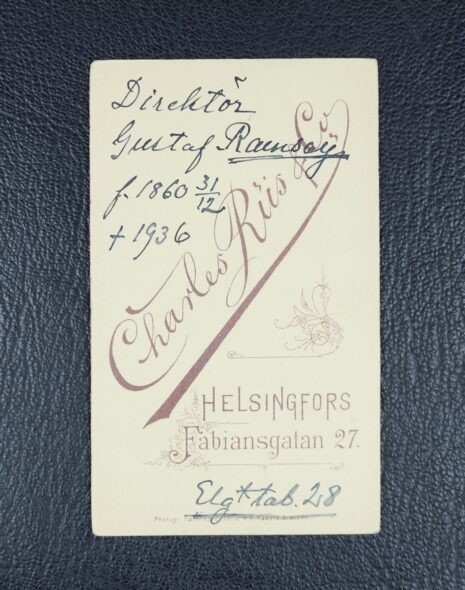 Direktör
Gustaf Ramsay
f. 1860 31/12
+ 1936
Charles Riis & Co
HELSINGFORS
Fabiansgatan 27.
tab. 28